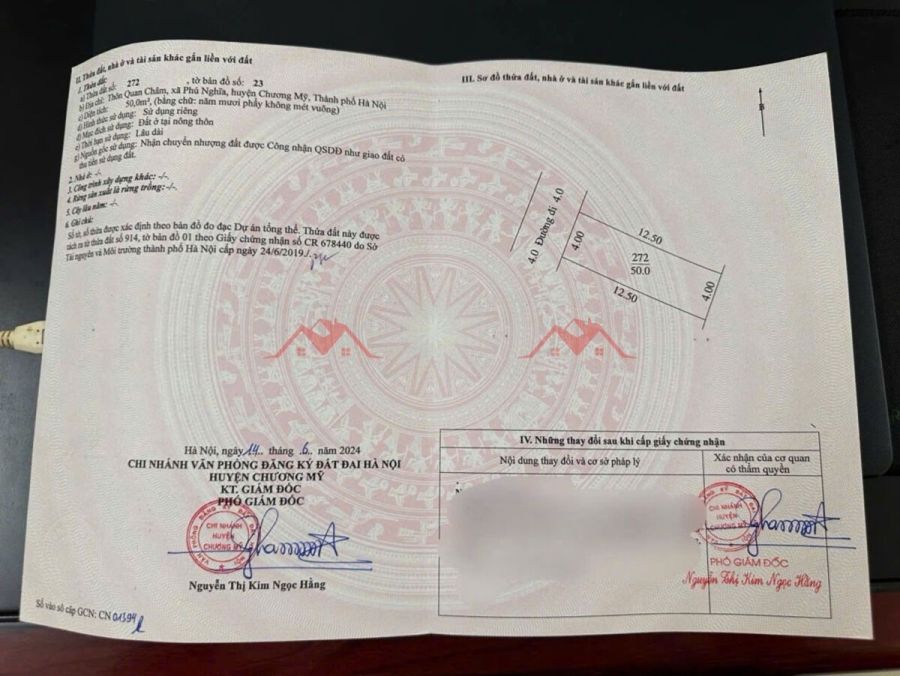 II. Thửa đất, nhà ở và tài sản khác gắn liền với đất
1. Thửa đất:
a) Thửa đất số: 272 , tờ bản đồ số: 23
b) Địa chỉ: Thôn Quan Châm, xã Phú Nghĩa, huyện Chương Mỹ, Thành phố Hà Nội
c) Diện tích: 50,0m², (bằng chữ: năm mươi phẩy không mét vuông)
d) Hình thức sử dụng: Sử dụng riêng
đ) Mục đích sử dụng: Đất ở tại nông thôn
e) Thời hạn sử dụng: Lâu dài
g) Nguồn gốc sử dụng: Nhận chuyển nhượng đất được Công nhận QSDĐ như giao đất có
thu tiền sử dụng đất.
2. Nhà ở: -/-
3. Công trình xây dựng khác: -/-
4. Rừng sản xuất là rừng trồng: -/-
5. Cây lâu năm: -/-
6. Ghi chú:
Số tờ, số thửa được xác định theo bản đồ đo đạc Dự án tổng thể. Thửa đất này được
tách ra từ thửa đất số 914, tờ bản đồ 01 theo Giấy chứng nhận số CR 678440 do Sở
Tài nguyên và Môi trường thành phố Hà Nội cấp ngày 24/6/2019./.
Hà Nội, ngày 14 tháng 6 năm 2024
CHI NHÁNH VĂN PHÒNG ĐĂNG KÝ ĐẤT ĐAI HÀ NỘI
HUYỆN CHƯƠNG MỸ
KT. GIÁM ĐỐC
PHÓ GIÁM ĐỐC
CHI NHÁNH
HUYỆN
CHƯƠNG MỸ
Nguyễn Thị Kim Ngọc Hằng
Số vào sổ cấp GCN: CN 01394
III. Sơ đồ thửa đất, nhà ở và tài sản khác gắn liền với đất
B
4.0 Đường đi 4.0
4.00
12.50
272
50.0
12.50
4.00
IV. Những thay đổi sau khi cấp giấy chứng nhận
Nội dung thay đổi và cơ sở pháp lý
Xác nhận của cơ quan
có thẩm quyền
CHI NHÁNH
HUYỆN
CHƯƠNG MỸ
PHÓ GIÁM ĐỐC
Nguyễn Thị Kim Ngọc Hằng